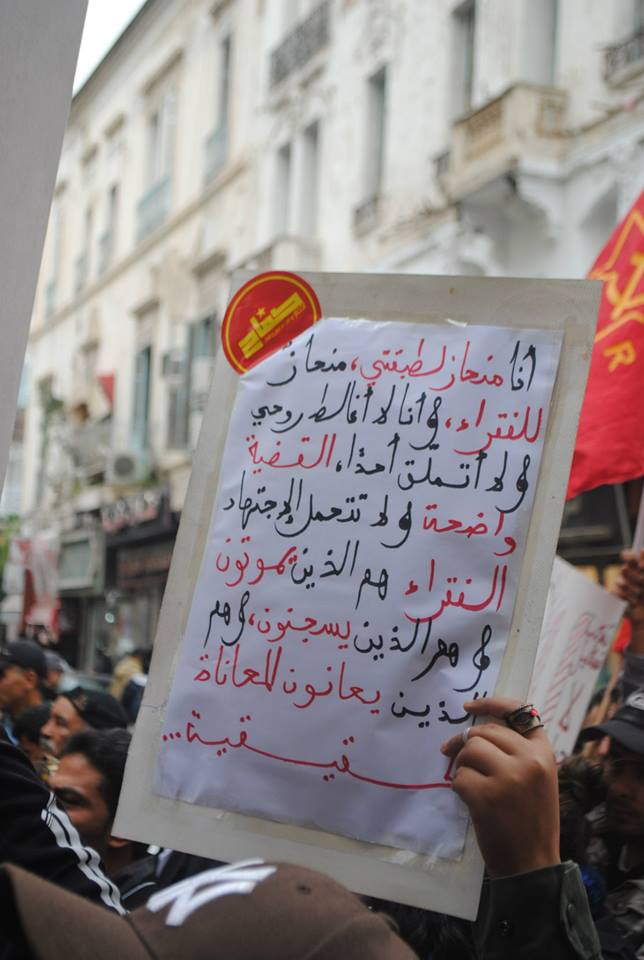 كفاح
انا منحاز لطبقتي، منحاز
للفقراء، و أنا لا أغالط روحي
و لا أتملق أحدًا، القضية
واضحة و لا تتحمل الإجتهاد
الفقراء هم الذين يموتون
و هم الذين يسجنون، و هم
الذين يعانون المعاناة
R